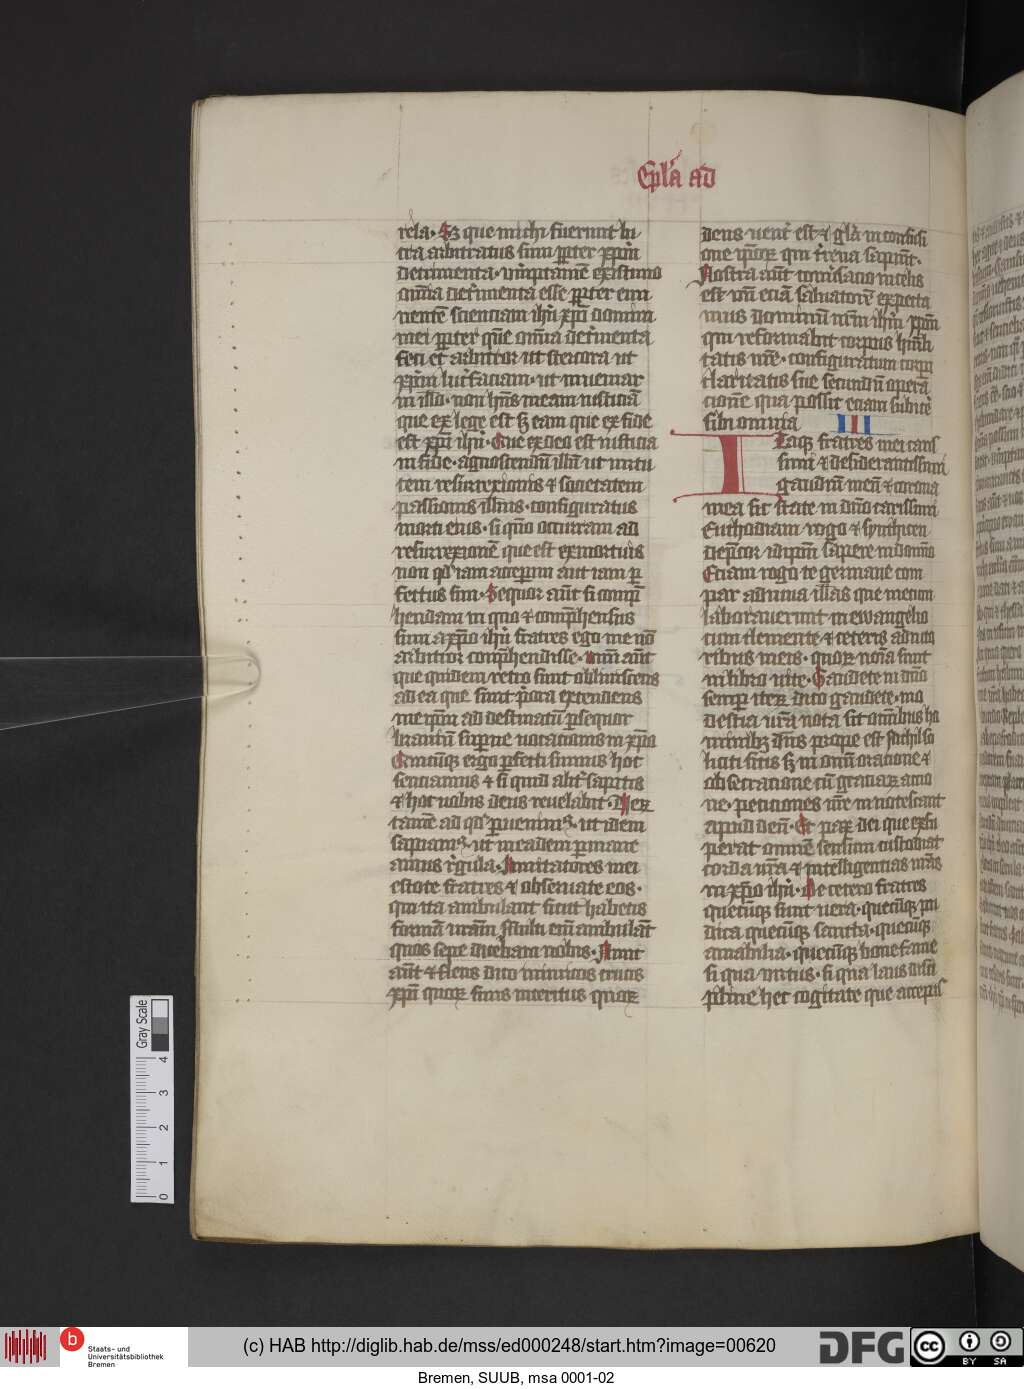 Epl̄a ad
rela. Sȝ que michi fuerunt lu
cra arbitratus sum ꝓpter xp̄m
detrimenta. veriptamē existimo
omīa det'menta esse ꝓpter emi
nentē scienciam ih̄u xp̄i domini
mei ꝓpter quē omīa det'menta
feci et arbitror ut stercora ut
xp̄m luc'faciam. ut inueniar
in illo. non hn̄s meam iusticiā
que ex lege est sȝ eam que ex fide
est xp̄i ih̄u. Que ex deo est iusticia
in fide. agnoscendū illū ut virtu
tem resurrexionis ⁊ societatem
passionis illius. configuratus
morti eius. si quō occurram ad
resurrexionē que est ex mortuis
non qd̄ iam acceperim aut iam ꝑ
fectus sim. Sequor aūt si comp̄
hendam in quo ⁊ comp̄hensus
sum a xp̄o ih̄u fratres ego me nō
arbitror comp̄hendisse. Vnū aūt
que quidem retro sunt obliuiscens
ad ea que sunt p̄ora extendens
me ip̄m ad destinatū ꝑsequor
brauiū superne vocationis in xp̄o
Quicūqꝫ ergo ꝑfecti sumus hoc
senciamus ⁊ si quid alit' sapitis
⁊ hoc uobis deus reuelabit. Ueꝝ
tamē ad qd̄ ꝑuenimꝰ. ut idem
sapiamꝰ. ut in eadem ꝑmane
amus r̄gula. Imitatores mei
estote fratres ⁊ obseruate eos.
qui ita ambulant sicut habetis
formā nr̄am Multi enī ambulāt
quos sepe dicebam uobis. Nunc
aūt ⁊ flens dico inimicos crucis
xp̄i quoꝝ finis interitus quoꝝ
deus uent' est ⁊ glā in confusi
one ip̄oꝝ qui t'rena sapiūt.
Nostra aūt conu'sacio in celis
est vn̄ eciā saluatorē expecta
mus dominū nr̄m ih̄m xp̄m
qui reformabit corpus humili
tatis nr̄e. configuratum corpi
claritatis sue secundū opera
cionē qua possit eciam subicē
sibi omnia IIII
Itaqꝫ fratres mei caris
simi ⁊ desiderantissimi
gaudiū meū ⁊ corona
mea sic state in dn̄o carissimi
Euchodiam rogo ⁊ synthicen
dep̄cor id ip̄m sapere in domīo
Eciam rogo te germane com
par adiuua illas que mecum
laborauerunt in ewangelio
cum clemente ⁊ ceteris adiuto
ribus meis. quoꝝ noīa sunt
in libro uite. Gaudete in dn̄o
semꝑ iteꝝ dico gaudete. mo
destia ur̄a nota sit omībus ho
minibꝫ dn̄s prope est Nichil so
liciti sitis sȝ in omī oratione ⁊
obsecratione cū graciaꝝ actio
ne. peticiones vr̄e innotescant
apud deū. Et pax dei que exsu
perat omnē sensum custodiat
corda ur̄a ⁊ intelligentias vr̄as
in xp̄o ih̄u. De cetero fratres
quecūqꝫ sunt uera. quecūqꝫ pu
dica quecūqꝫ sancta. quecūqꝫ
amabilia. quecūqꝫ bone fame
si qua virtus. si qua laus disci
pline hec cogitate que accepis
Gray Scale
0 1 2 3 4
b
Staats- und
Universitätsbibliothek
Bremen
(c) HAB http://diglib.hab.de/mss/ed000248/start.htm?image=00620
DFG
cc BY SA
Bremen, SUUB, msa 0001-02